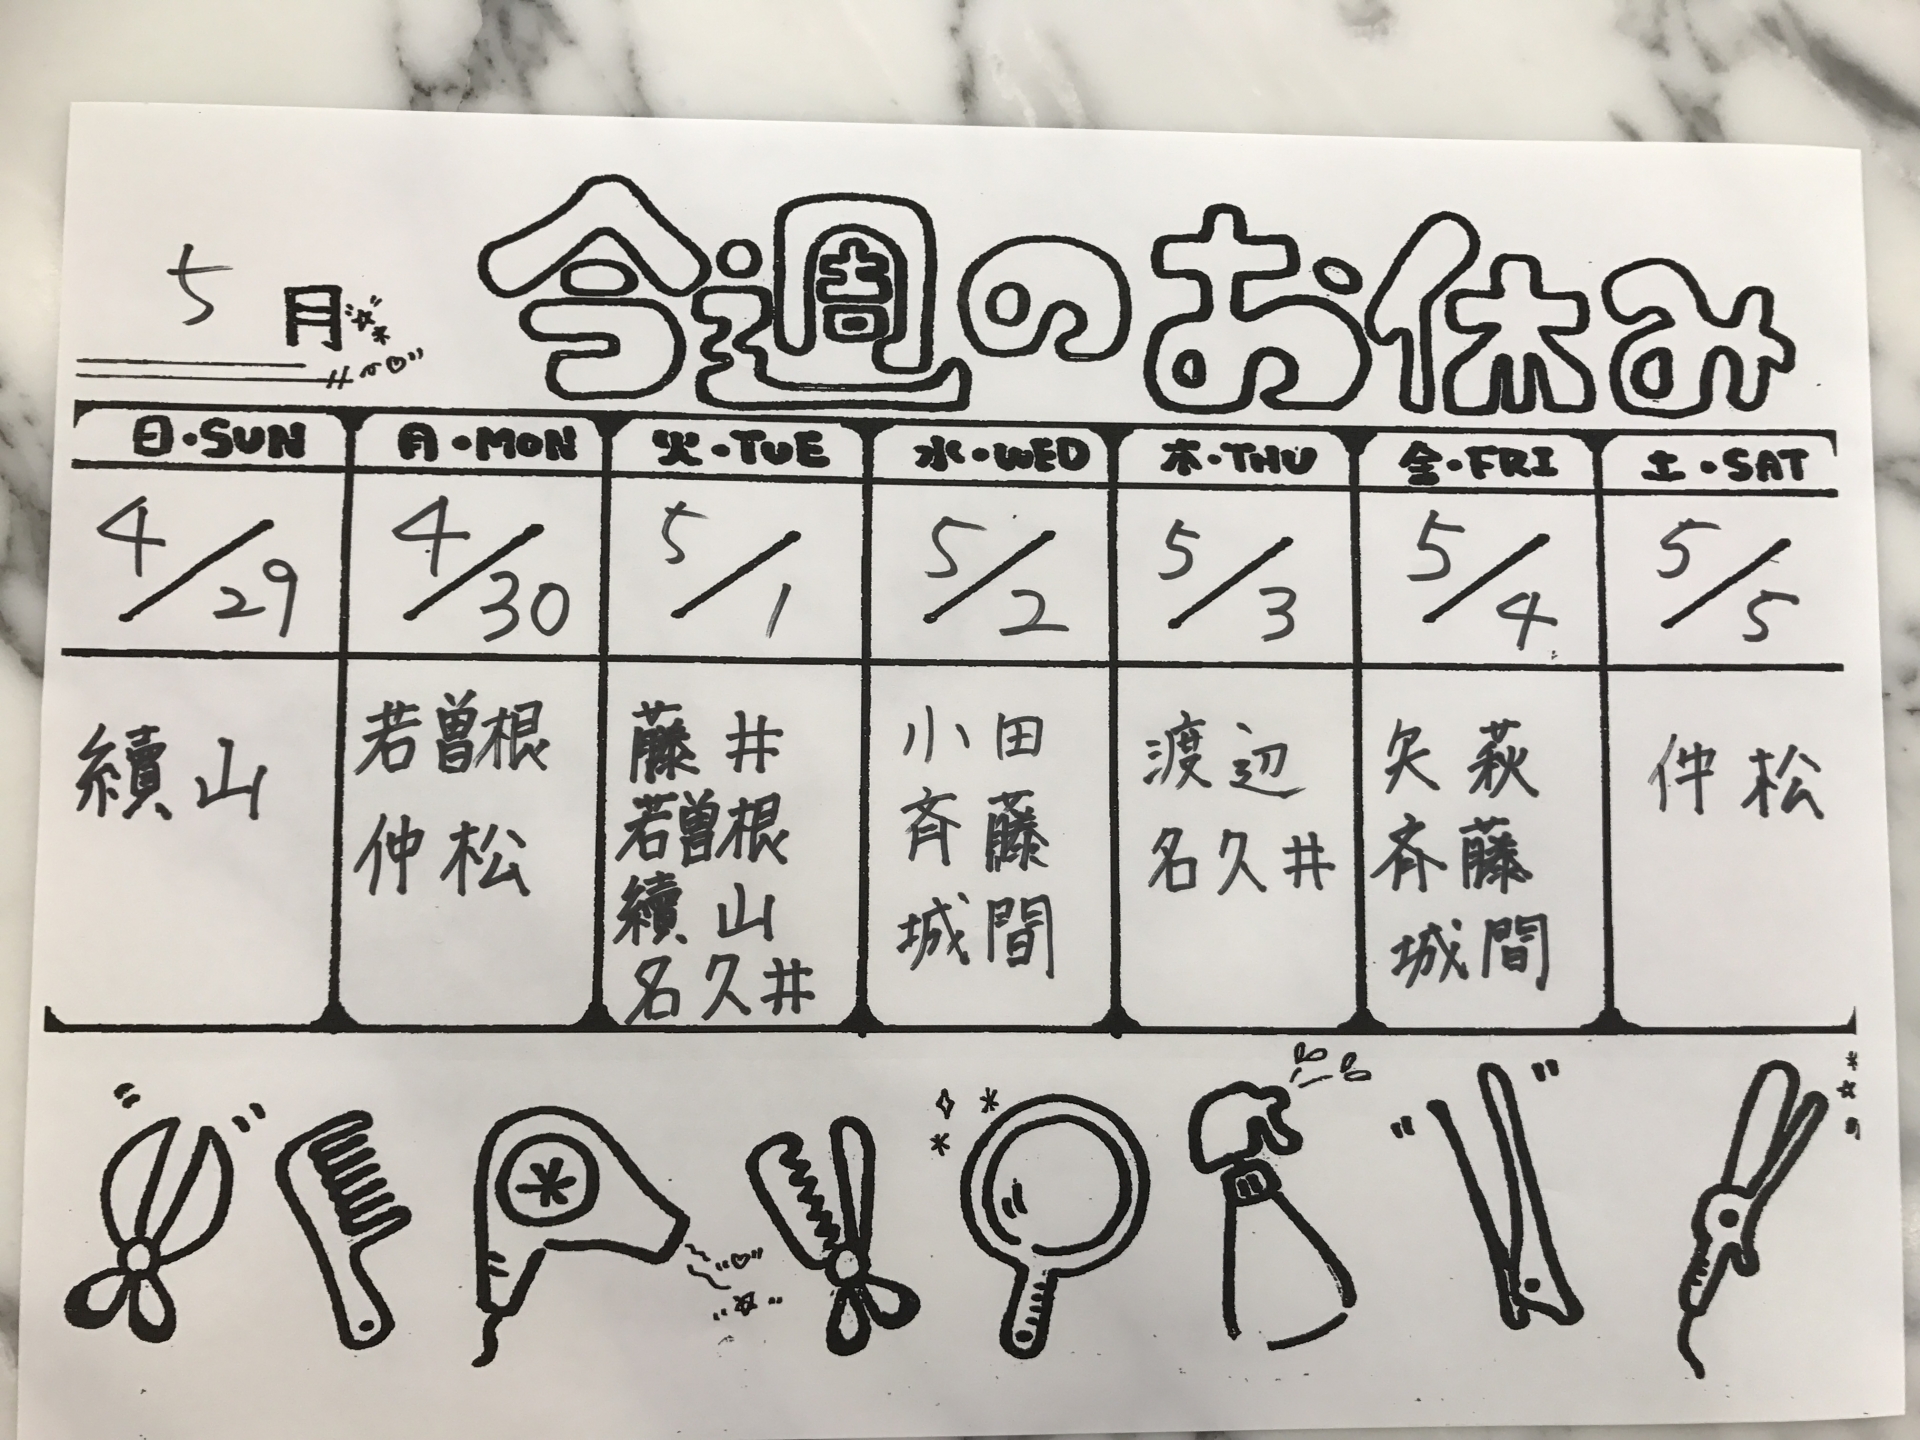 5月
今週のお休み
日・SUN 月・MON 火・TUE 水・WED 木・THU 金・FRI 土・SAT
4/29 4/30 5/1 5/2 5/3 5/4 5/5
續山
若曽根
仲松
藤井
若曽根
續山
名久井
小田
斉藤
城間
渡辺
名久井
矢萩
斉藤
城間
仲松